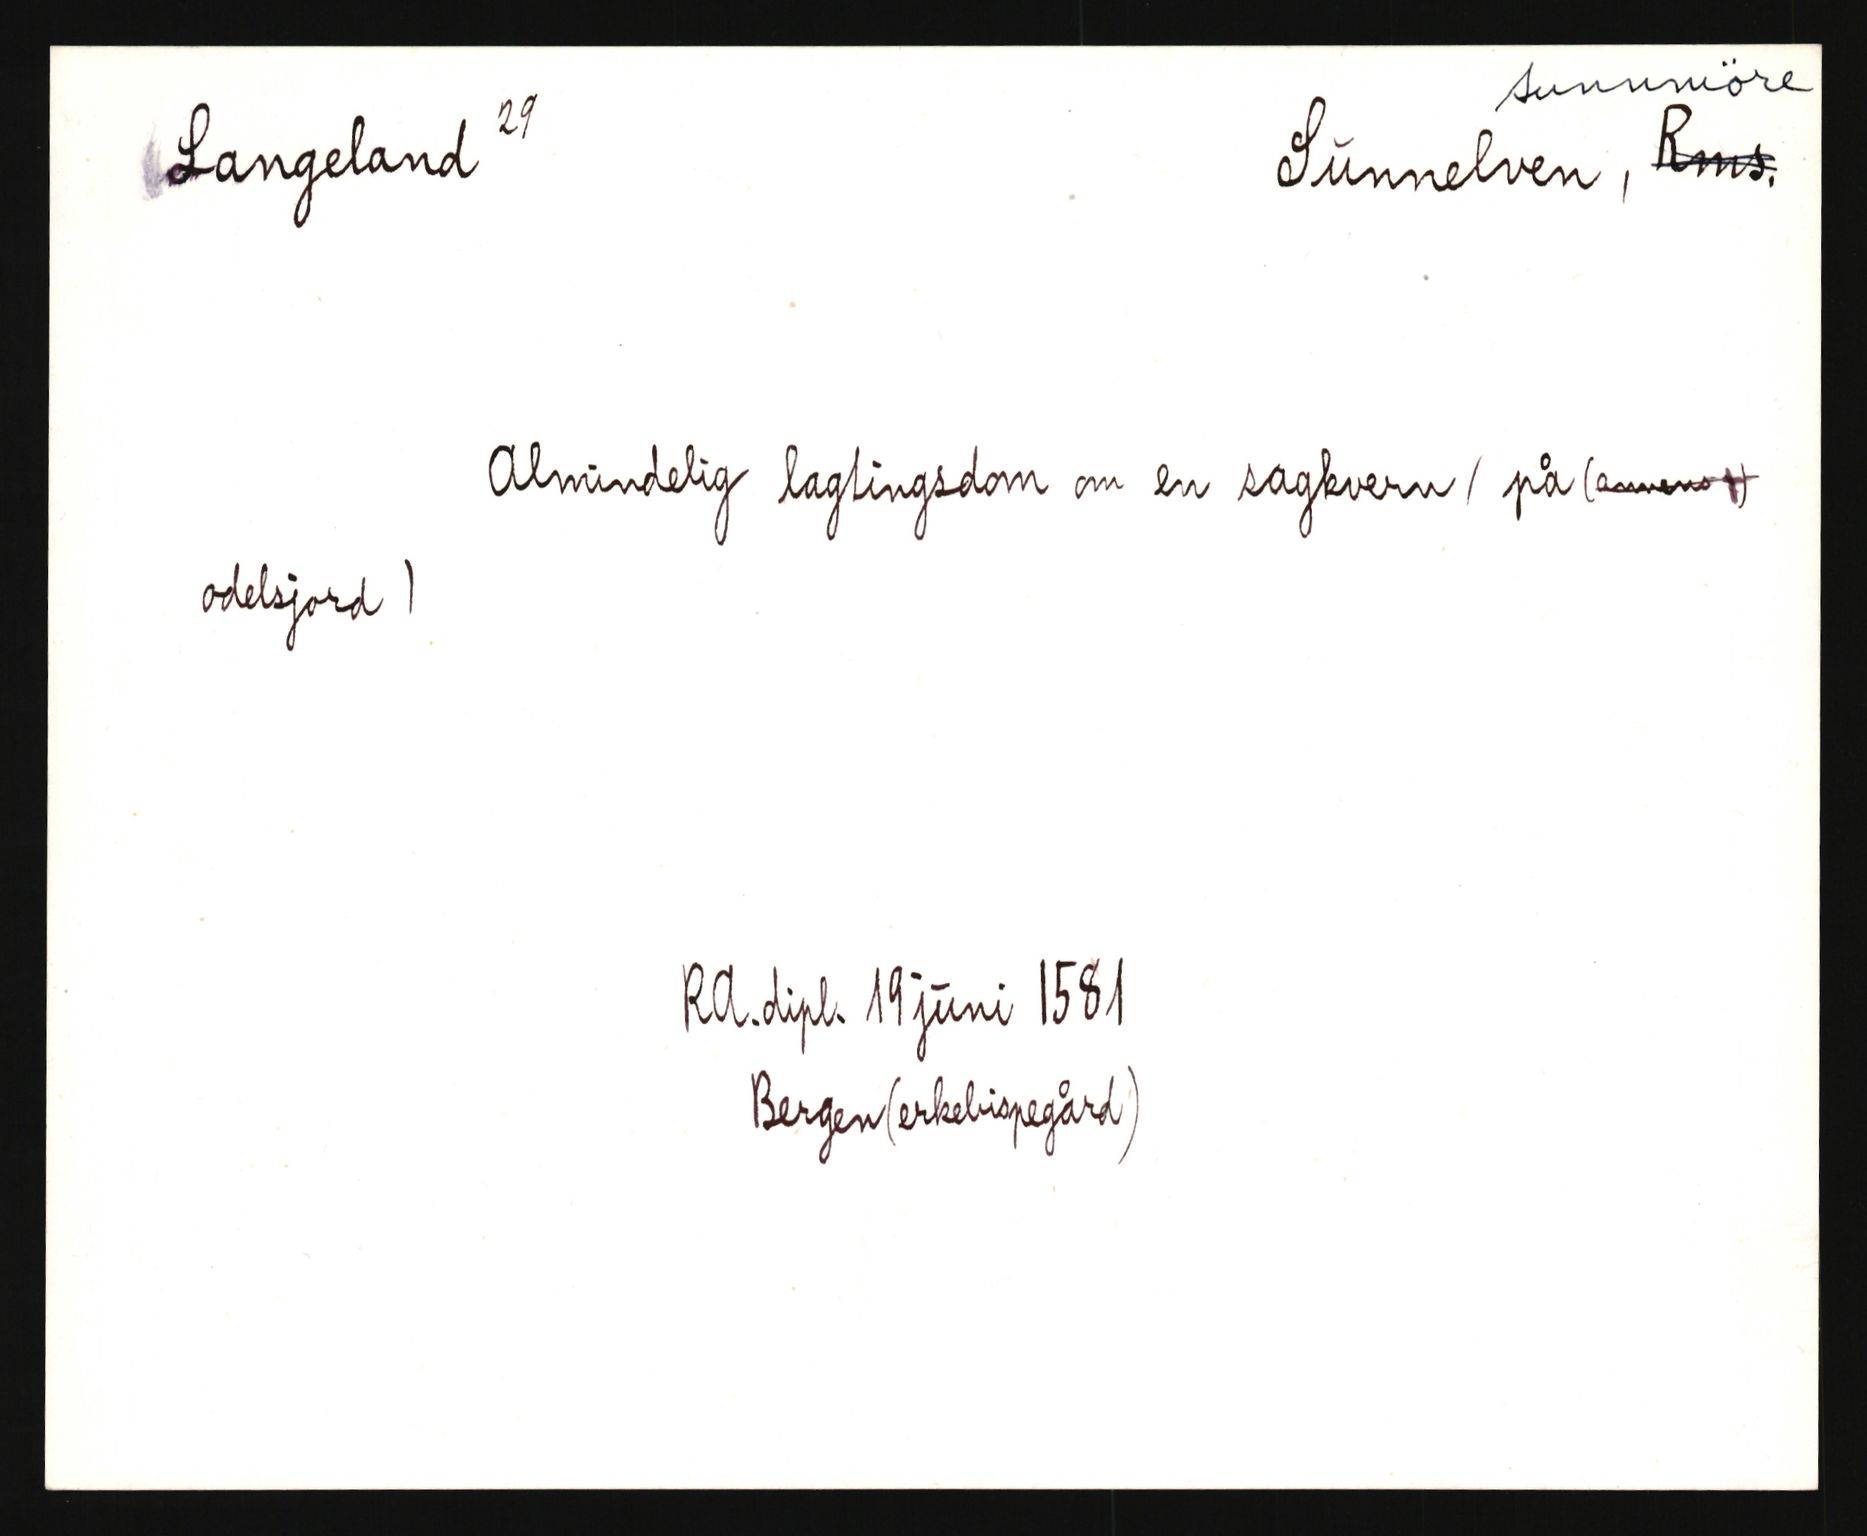 sunnmöre
Langeland 29 Sunnelven, Rms.
Almindelig lagtingsdom om en sagkvern / på (annens)
odelsjord )
RA. dipl. 19 juni 1581
Bergen (erkebispegård)